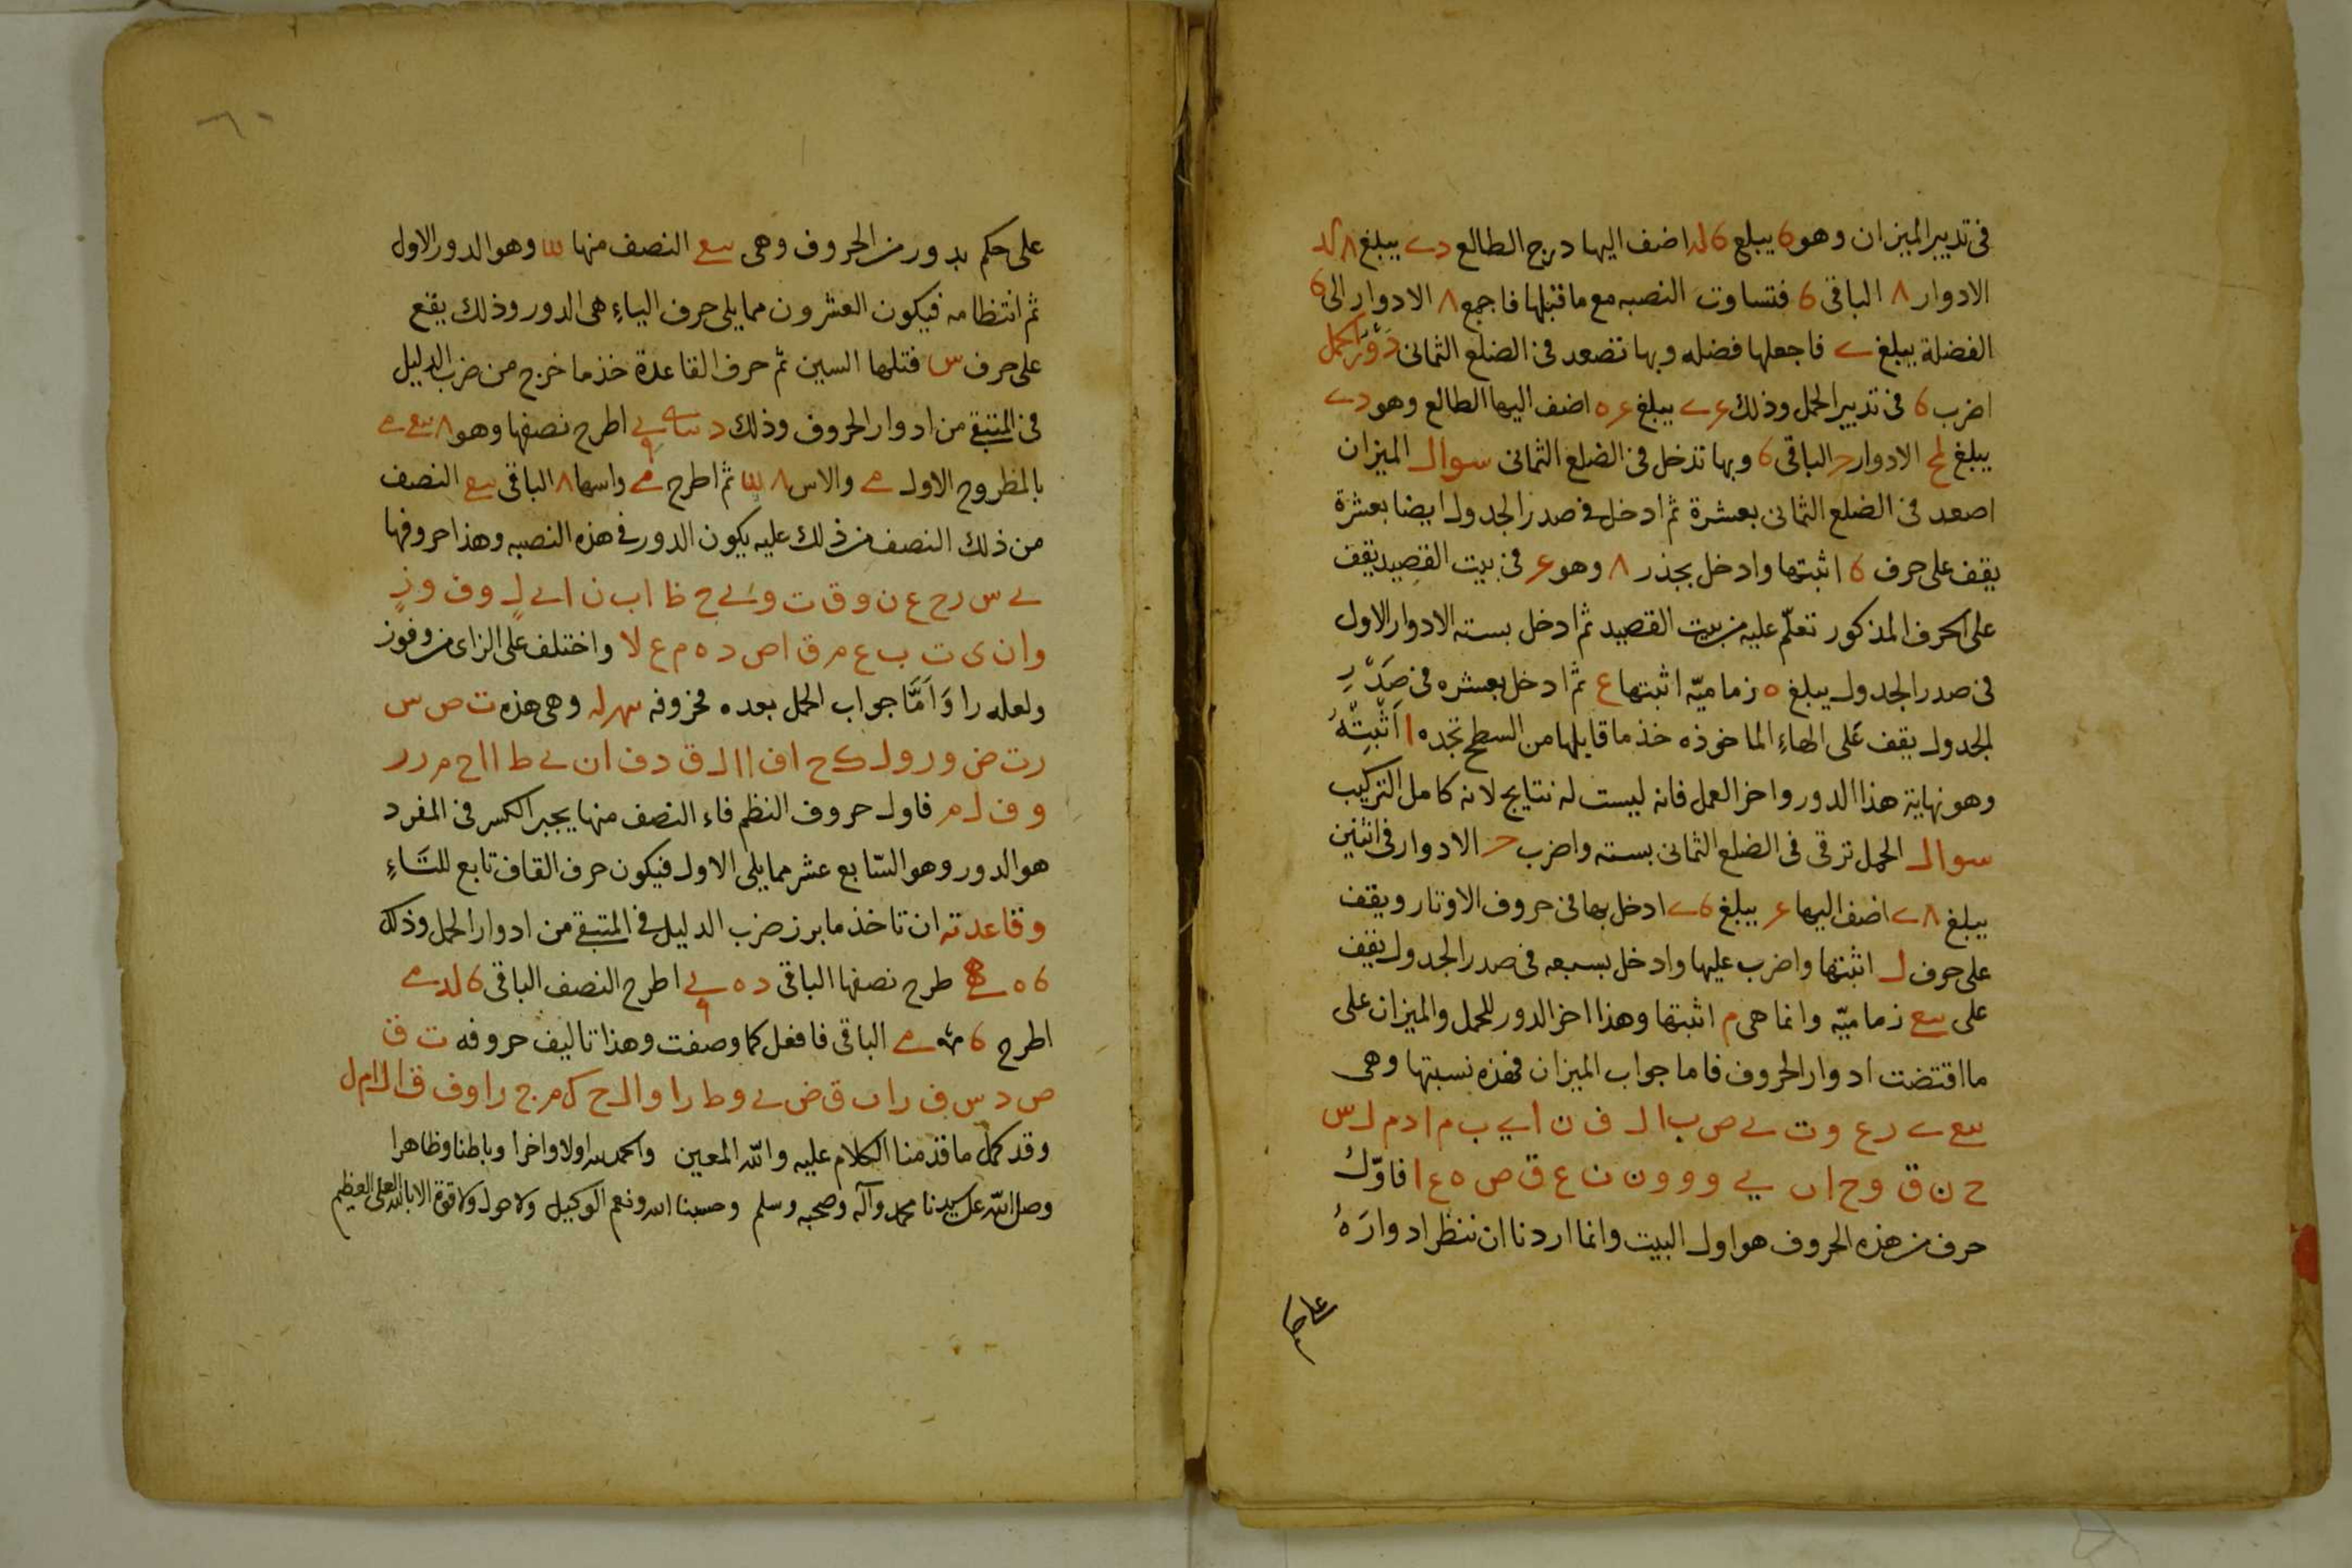 فى تدبير الميزان وهو 6 يبلغ 6 لد اضف اليها درج الطالع دے يبلغ ٨ لد
الادوار ٨ الباقى 6 فتساوت النصبه مع ما قبلها فاجمع ٨ الادوار الى 6
الفضلة يبلغ ے فاجعلها فضله وبها تصعد فى الضلع الثمانى دَوْرُ الحمل
اضرب 6 فى تدبير الحمل وذلك ع ے يبلغ ع ٥ اضف اليها الطالع وهو دے
يبلغ لح الادوار ح الباقى 6 وبها تدخل فى الضلع الثمانى سوال الميزان
اصعد فى الضلع الثمانى بعشرة ثم ادخل فى صدر الجدول ايضا بعشرة
يقف على حرف 6 اثبتها وادخل بجذر ٨ وهو ع فى بيت القصيد يقف
على الحرف المذكور تعلّم عليه من بيت القصيد ثم ادخل بسته الادوار الاول
فى صدر الجدول يبلغ ٥ زماميّه اثبتها ع ثم ادخل بعشره فى صَدْرِ
الجدول يقف عَلى الهاءِ الماخوذه خذ ما قابلها من السطح تجده ا اَثْبِتْهُ
وهو نهاية هذا الدور واخر العمل فانه ليست له نتايج لانه كامل التركيب
سوال الحمل ترقى فى الضلع الثمانى بسته واضرب ح الادوار فى اثنين
يبلغ ٨ے اضف اليها ع يبلغ 6ے ادخل بها فى حروف الاوتار ويقف
على حرف ل اثبتها واضرب عليها وادخل بسبعه فى صدر الجدول يقف
على سع زماميّه وانما هى م اثبتها وهذا اخر الدور للحمل والميزان على
ما اقتضت ادوار الحروف فاما جواب الميزان فهذه نسبتها وهى
سع ے د ع و ت ے ص ب ا ل ف ن ا ے ب م ا د م ل س
ح ن ق و ح ا ں ے و و و ن ن ع ق ص ه ع ا فاوّلُ
حرف من هذه الحروف هو اول البيت وانما اردنا ان ننظر ادوارَهُ
على حكم بدور من الحروف وهى سع النصف منها لىا وهو الدور الاول
ثم انتظامه فيكون العشرون مما يلى حرف الياءِ هى الدور وذلك يقع
على حرف س فتلها السين ثم حرف القاعدة خذ ما خرج من ضرب الدليل
فى المتبقى من ادوار الحروف وذلك اطرح نصفها وهو ٨
بالمطروح الاول والاس ٨ ثم اطرح واسها ٨ الباقى سع النصف
من ذلك النصف من ذلك عليه يكون الدور فى هذه النصبه وهذا حروفها
ے س ر ح ع ن و ق ت و ے ج ظ ا ب ن ا ے ل و ف و ز
و ا ن ى ت ب ع م ق ا ص د ه م ع لا واختلف على الزاى من وفوز
ولعله را وَاَمَّا جواب الحمل بعده فحروفه وهى هذه ت ص س
ر ت ض و ر و ل ك ح ا ف ا ا ل ق د ف ا ن ے ط ا ا ح م ر ر
و ف ل م فاول حروف النظم فاء النصف منها يجبر الكسر فى المفرد
هو الدور وهو السّابع عشر مما يلى الاول فيكون حرف القاف تابع للتاءِ
وقاعدته ان تاخذ ما برز من ضرب الدليل فى المتبقى من ادوار الحمل وذلك
6 ٥ طرح نصفها الباقى د ه اطرح النصف الباقى 6 لد
اطرح 6 الباقى فافعل كما وصفت وهذا تاليف حروفه ت ق
ص د س ف ر ا ں ق ض ے و ط ر ا و ا ل ح ك م ج ر ا و ف ق ا ل ا م ل
وقد كمل ما قدمنا الكلام عليه والله المعين والحمد لله اولا واخرا وباطنا وظاهرا
وصلى الله على سيدنا محمد وآله وصحبه وسلم وحسبنا الله ونعم الوكيل ولا حول ولا قوة الا بالله العلى العظيم